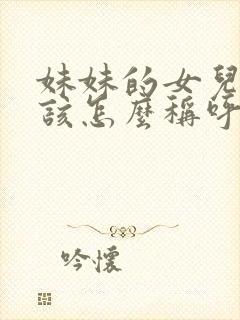 妹妹的女兒
該怎麼稱呼
吟懷